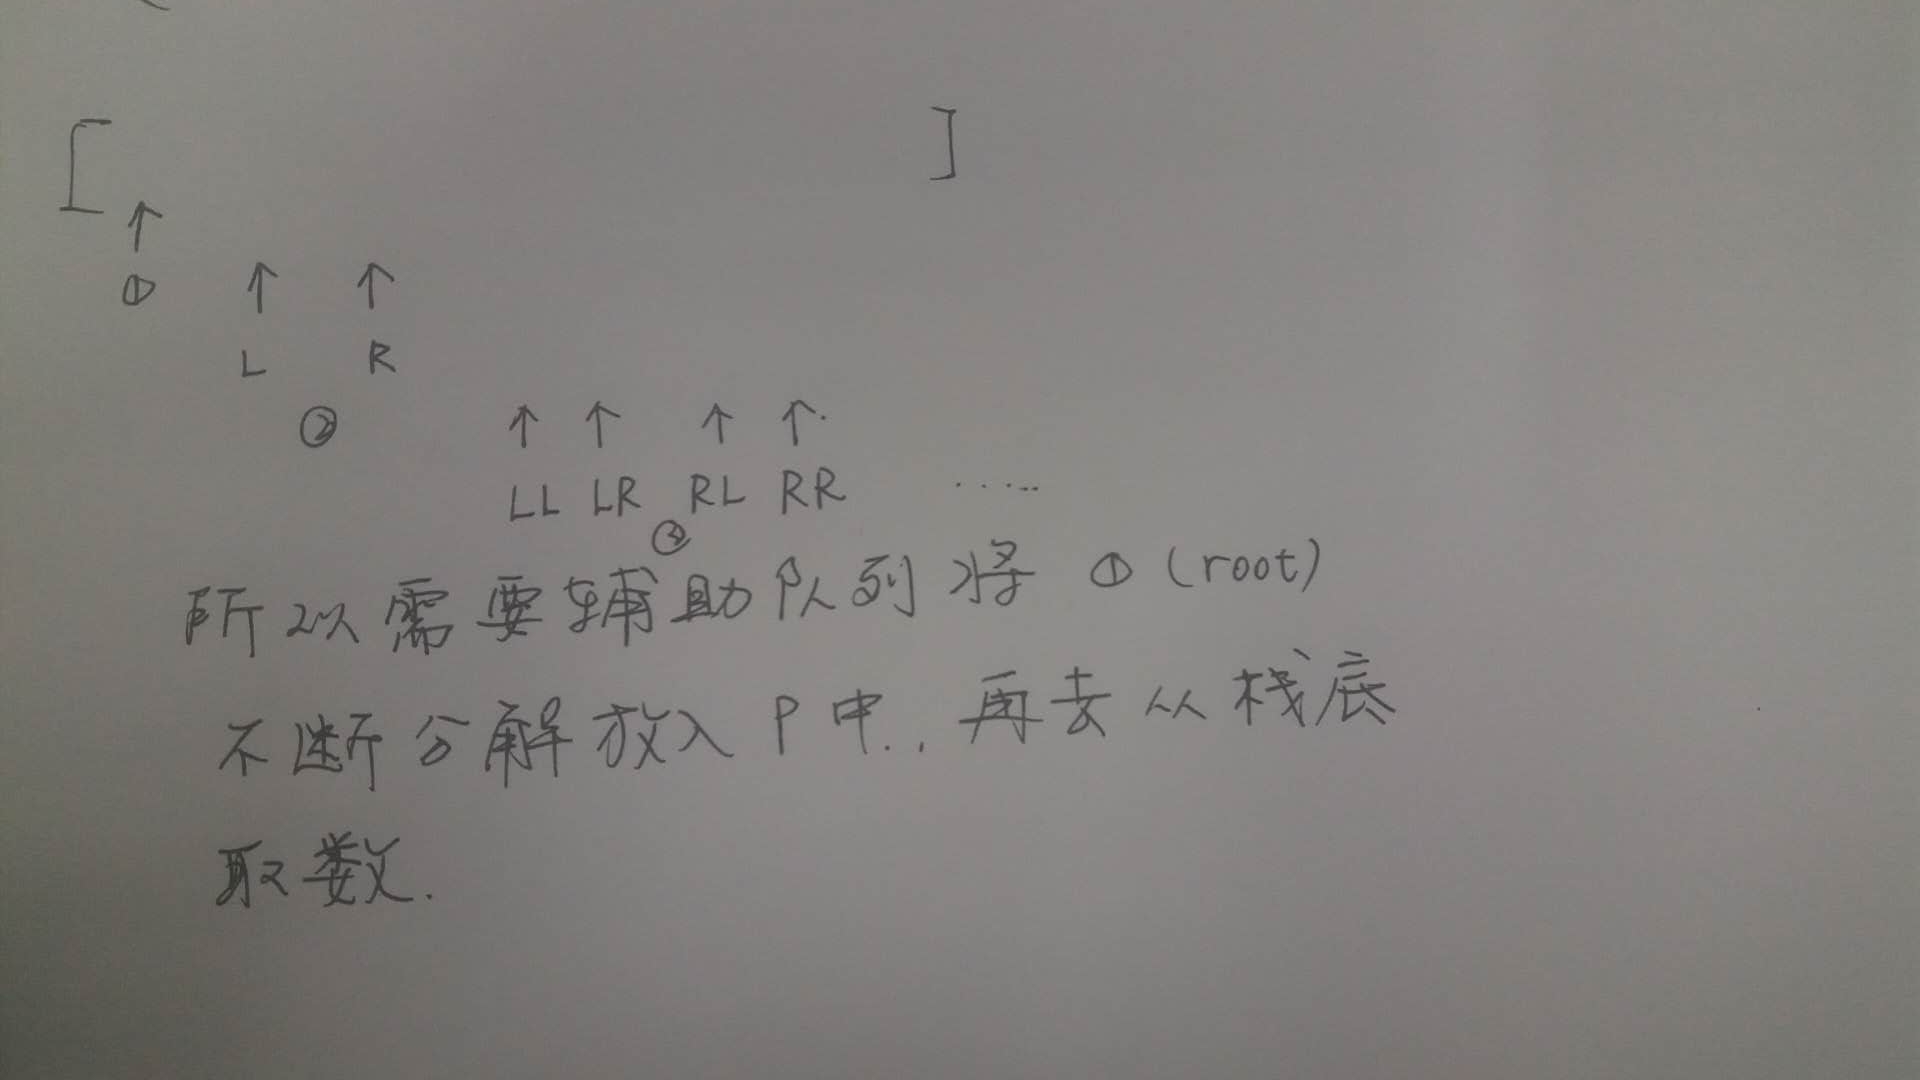 [ ]
↑
① ↑ ↑
L R
② ↑ ↑ ↑ ↑
LL LR RL RR .....
③
所以需要辅助队列将 ① (root)
不断分解放入 P 中., 再去从栈底
取数.